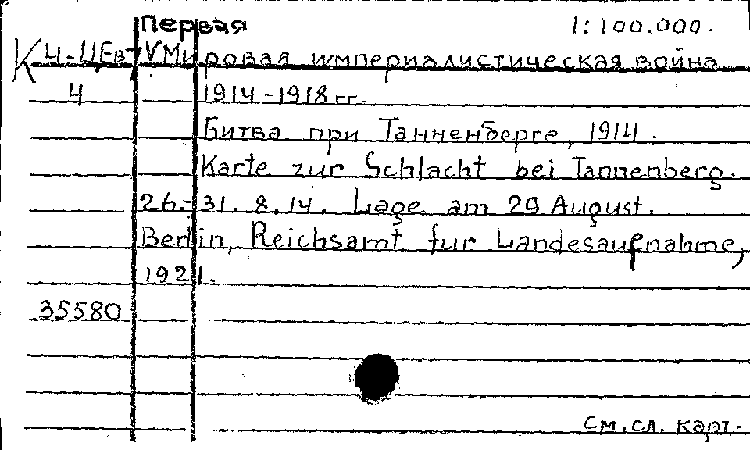 Первая 1:100.000.
К Ц-ЦЕв7 VМировая империалистическая война
4 1914-1918 гг.
Битва при Танненберге, 1914.
Karte zur Schlacht bei Tannenberg.
26.-31. 8. 14. Lage am 29 August.
Berlin, Reichsamt fur Landesaufnahme,
1921.
35580
см. сл. карт.